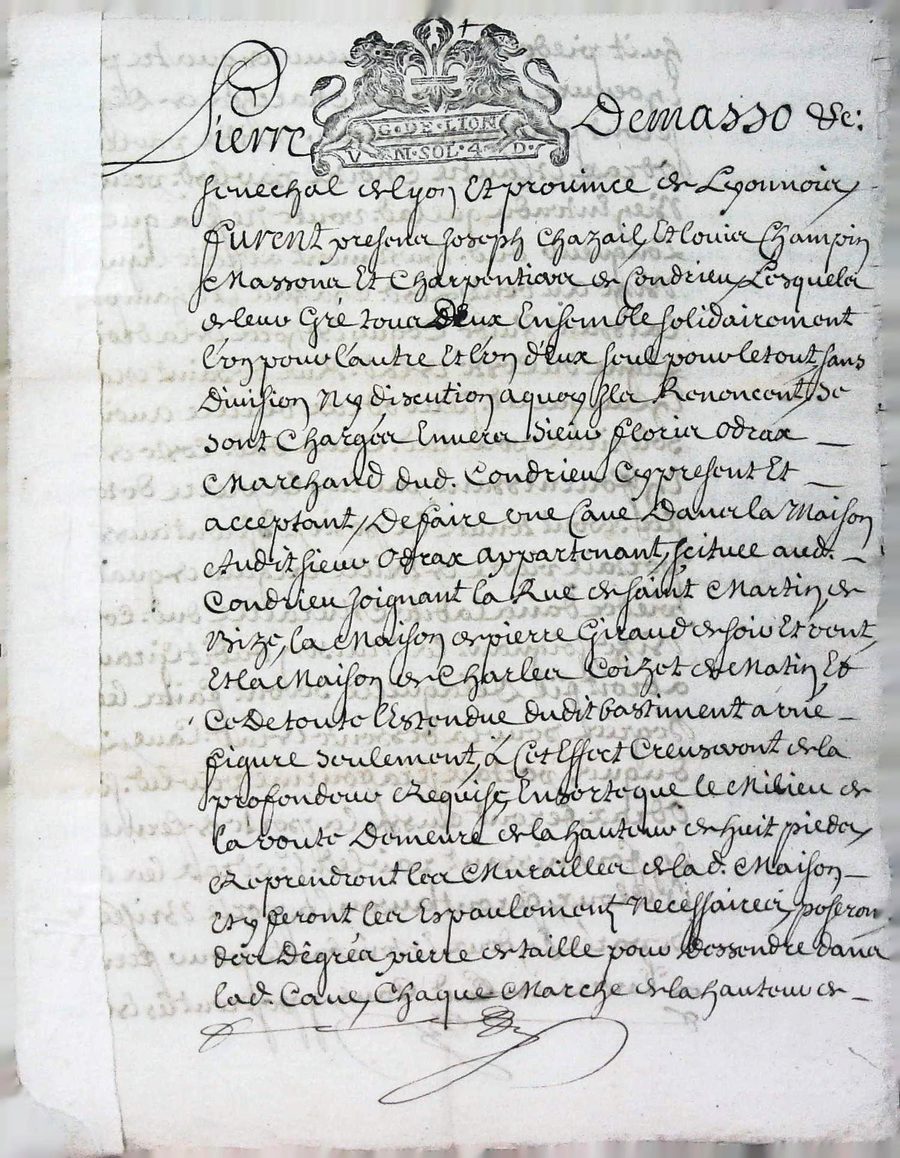 G·DE·LION
V·N·SOL·4·D·
Pierre Demasso &c:
senechal de lyon Et prouince de Lyonnois,
furent presens Joseph Chazail, Et louis Champin
Massons Et Charpentiers de Condrieu, Lesquels
de leur Gré tous Deux Ensemble solidairement
l'un pour l'autre Et l'un d'Eux seul pour le tout, sans
Diuision Ny discution a quoy Ils Renoncent, se
sont Charges Enuers sieur floris Odrax
Marchand dud. Condrieu Cy present Et
acceptant, De faire vne Caue Dans la Maison
Audit sieur Odrax appartenant, scituee aud.
Condrieu Joignant la Rue de saint Martin de
Bize, la Maison de pierre Giraud de soir Et vent,
Et la Maison de Charles Coizet de Matin, Et
Ce De toute l'Estendue dudit bastiment a
figure seulement, á Cet Effect Creuseront de la
profondeur Requise, Ensorte que le Milieu de
la voute Demeure de la hauteur de huit pieds,
Reprendront les Murailles de lad. Maison
Et y feront les Espaulement Necessaires, poseron
des Dêgrés pierre de taille pour Dessendre dans
lad. Caue, Chaque Marche de la hauteur de